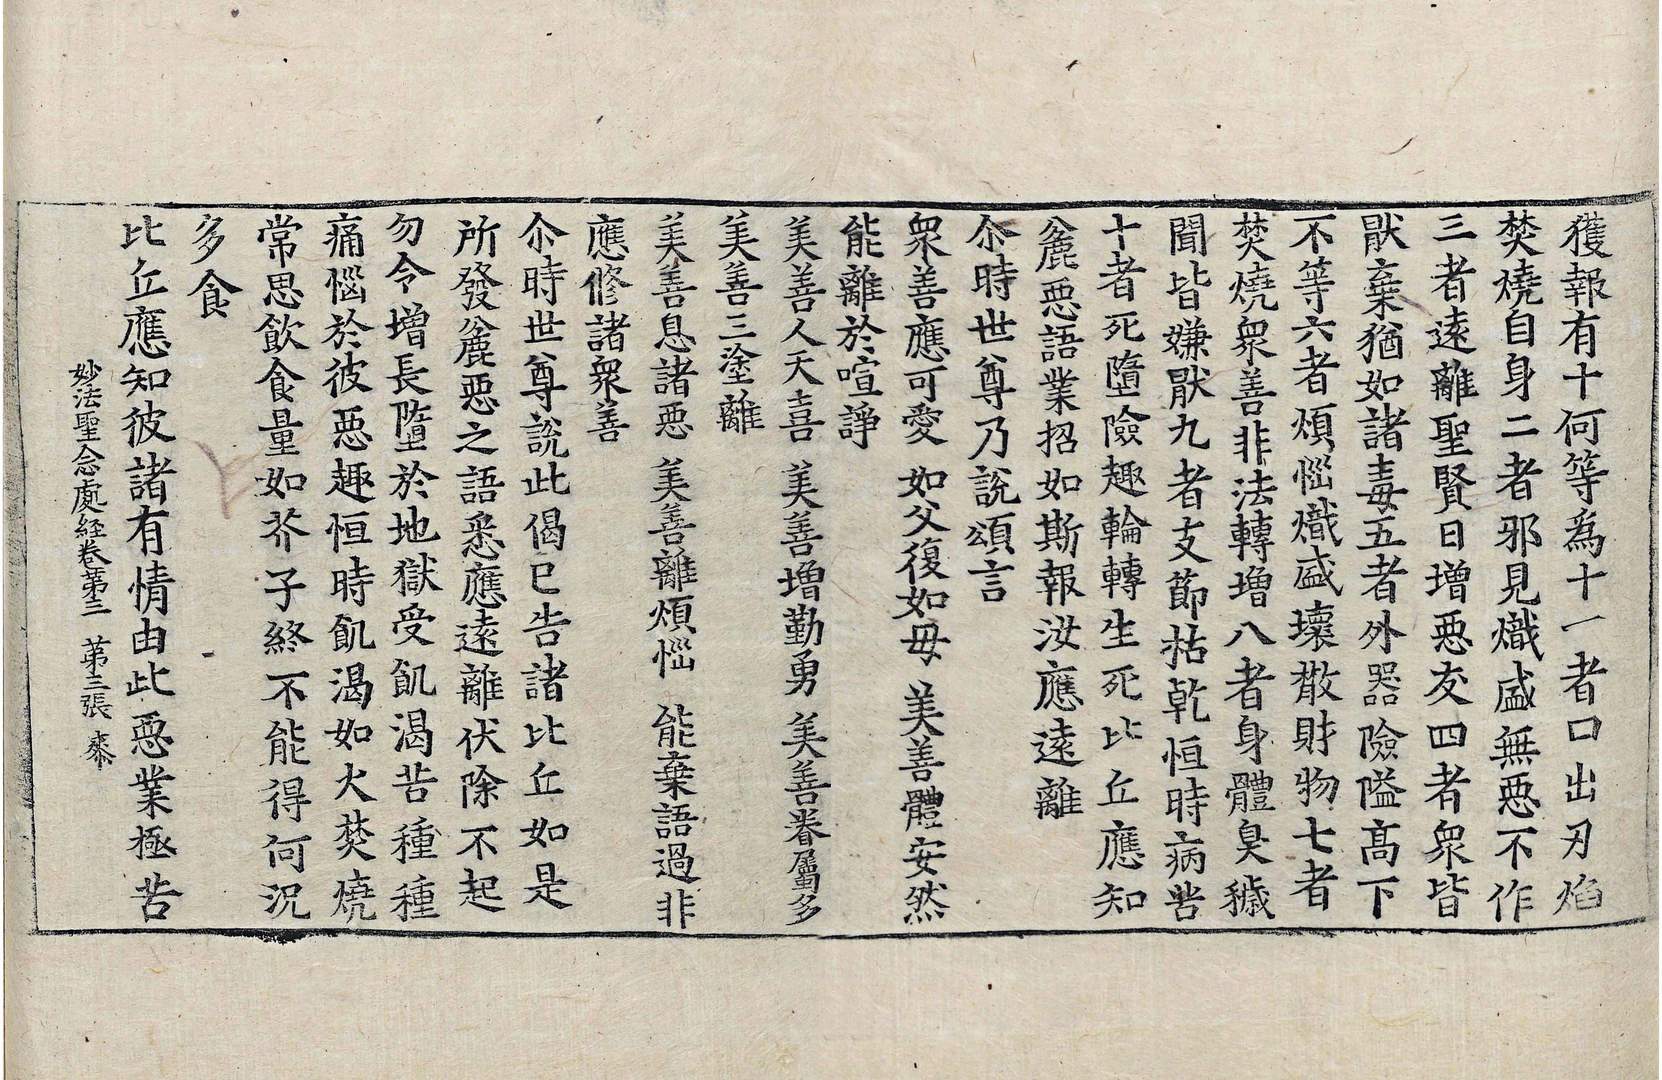 獲報有十何等爲十一者口出刃焰
焚燒自身二者邪見熾盛無惡不作
三者遠離聖賢日增惡友四者衆皆
猒棄猶如諸毒五者外器險隘髙下
不等六者煩惱熾盛壞散財物七者
焚燒衆善非法轉增八者身體臭穢
聞皆嫌猒九者支節枯乾恒時病苦
十者死墮險趣輪轉生死比丘應知
麁惡語業招如斯報汝應遠離
尒時世尊乃說頌言
衆善應可愛　如父復如母　美善體安然
能離於喧諍
美善人天喜　美善增勤勇　美善眷屬多
美善三塗離
美善息諸惡　美善離煩惱　能棄語過非
應修諸衆善
尒時世尊說此偈已告諸比丘如是
所發麁惡之語悉應遠離伏除不起
勿令增長墮於地獄受飢渴苦種種
痛惱於彼惡趣恒時飢渴如火焚燒
常思飲食量如芥子終不能得何況
多食
比丘應知彼諸有情由此惡業極苦
妙法聖念處経卷第三　第三張　㭍